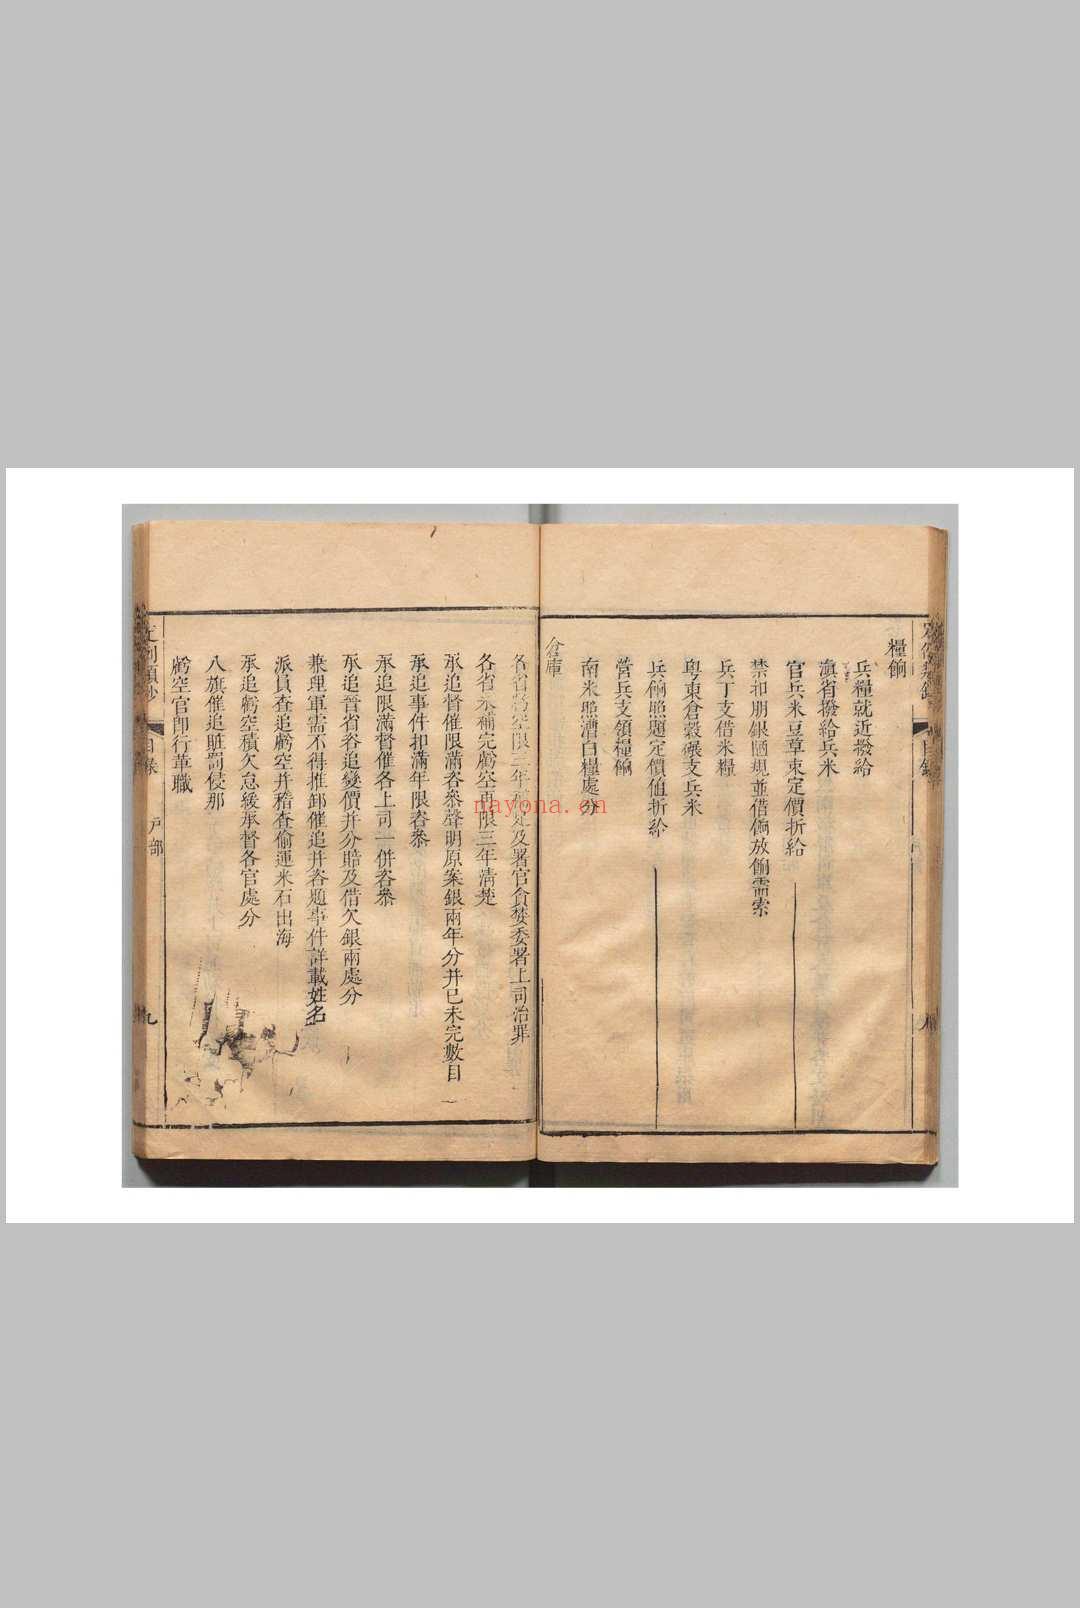 糧餉
兵糧就近撥給
滇省撥給兵米
官兵米豆草束定價折給
禁扣朋銀陋規並借餉放餉需索
兵丁支借米糧
粵東倉穀碾支兵米
兵餉照題定價值折給
營兵支領糧餉
南米照漕白糧處分
倉庫
各省虧空限三年 及署官貪婪委署上司治罪
各省未補完虧空再限三年清楚
承追督催限滿咨叅聲明原案銀兩年分并已未完數目
承追事件扣滿年限咨叅
承追限滿督催各上司一併咨叅
承追晉省咨追變價并分賠及借欠銀兩處分
兼理軍需不得推卸催追并咨題事件詳載姓名
派員查追虧空并稽查偷運米石出海
承追虧空積欠怠緩承督各官處分
八旗催追贓罰侵那
虧空官即行革職
定例類鈔
目錄
戶部
九
nayona.cn